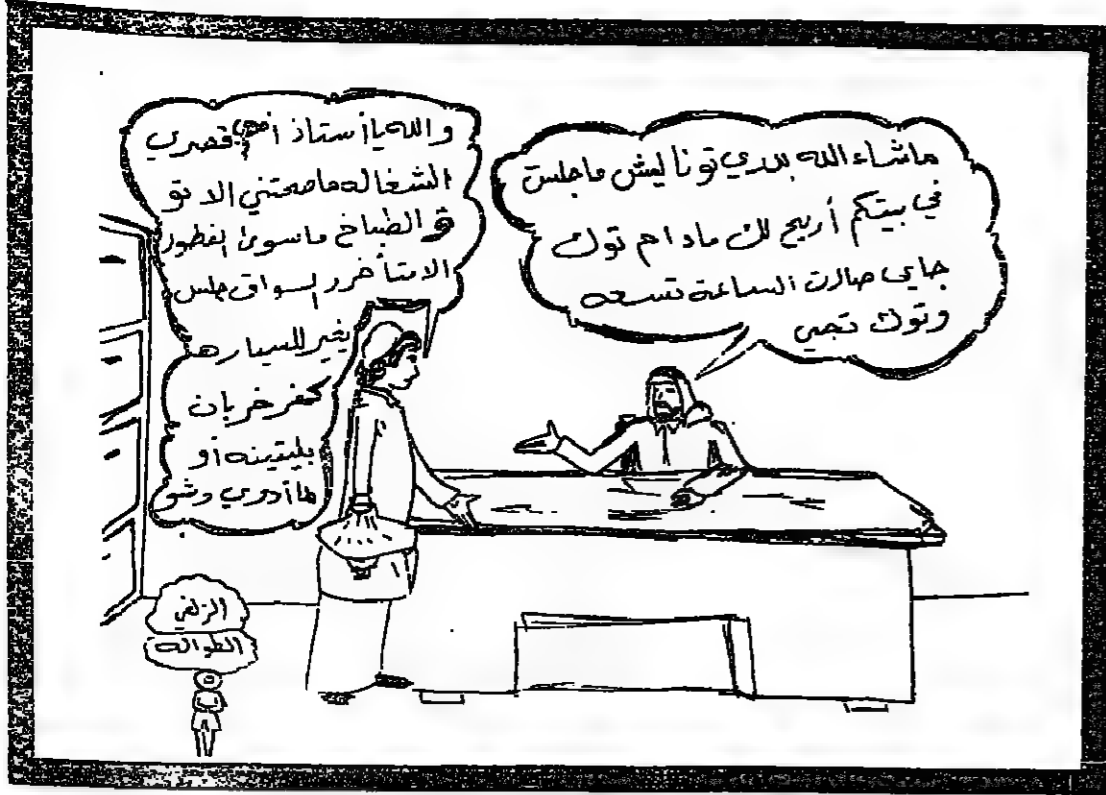 ماشاء الله بدري تونا ليش ماجلست
في بيتكم أريح لك مادام توك
جاي صارت الساعة تسعه
وتوك تجي
والله ياأستاذ قصدي
الشغاله ماصحتني الا تو
و الطباخ ماسوى الفطور
الا متأخر والسواق جلس
يغير للسياره
كفر خربان
بليتينه أو
ماأدري وشو
الزلفي
الطوالة